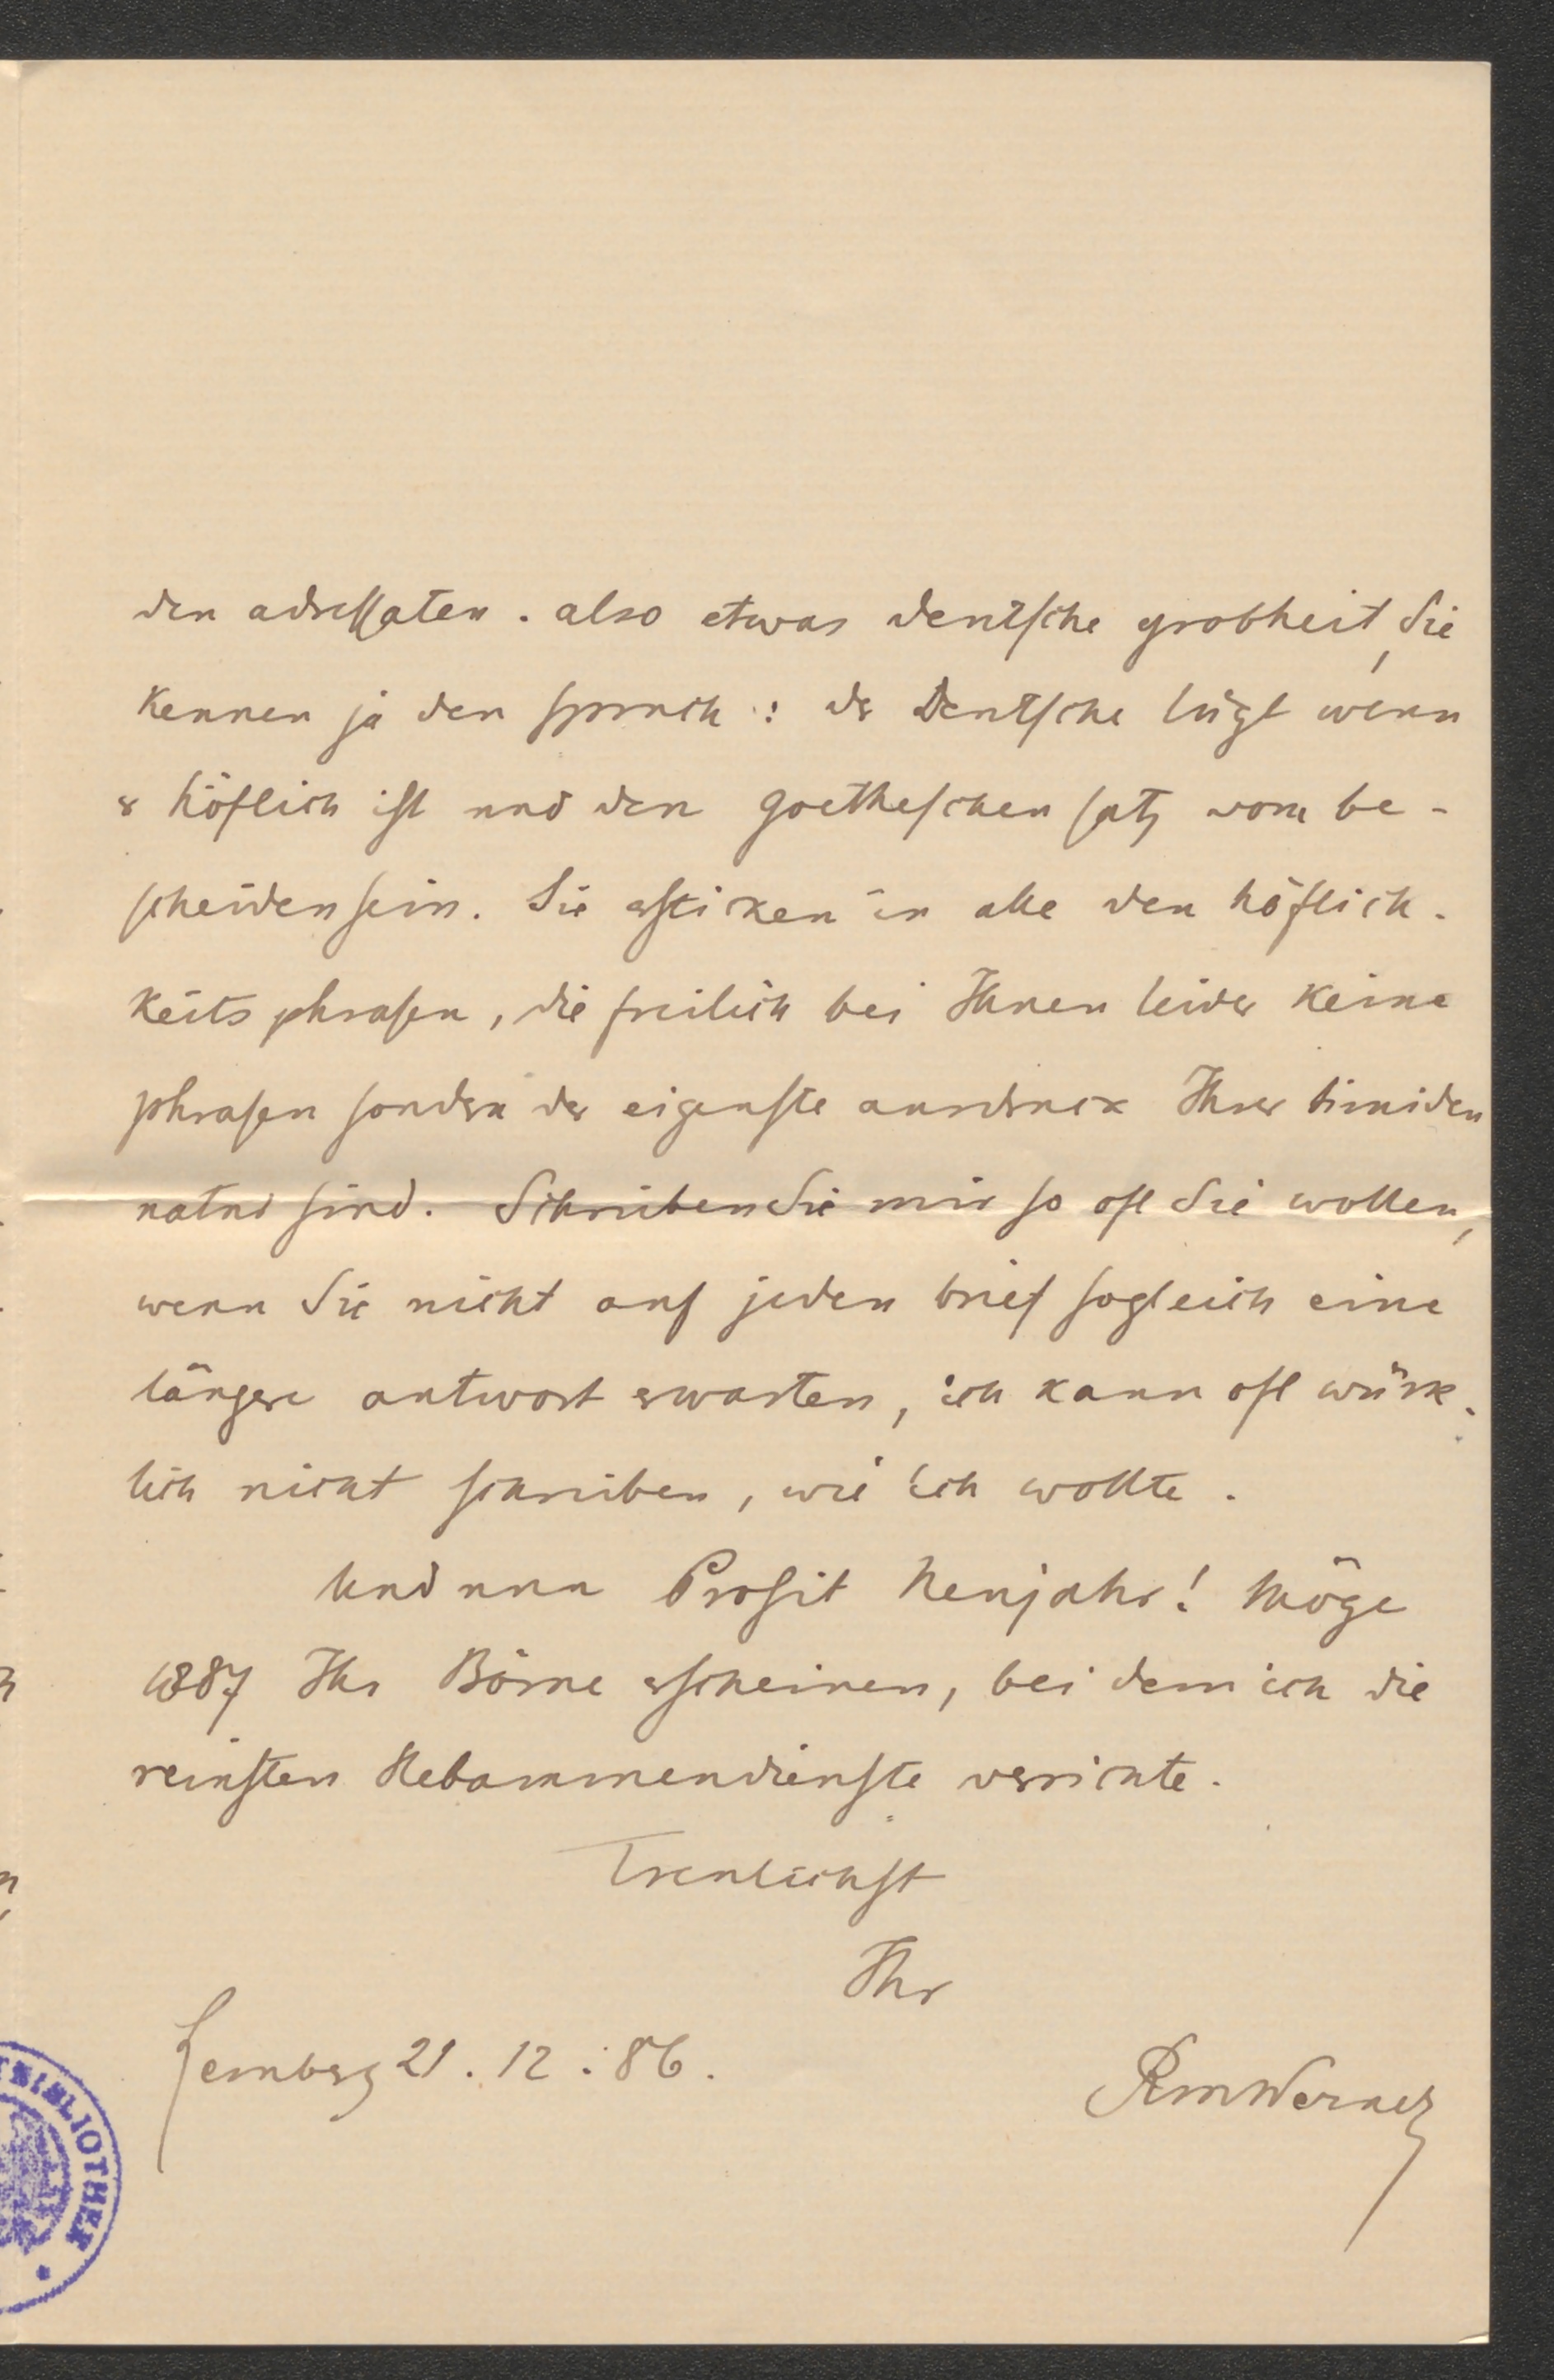 den adressaten. also etwas deutsche grobheit, Sie
kennen ja den spruch: der Deutsche lügt wenn
er höflich ist und den goetheschen satz vom be-
scheidensein. Sie ersticken in alle den höflich-
keitsphrasen, die freilich bei Ihnen leider keine
phrasen sondern der eigenste ausdruck Ihrer timiden
natur sind. Schreiben Sie mir so oft Sie wollen,
wenn Sie nicht auf jeden brief sogleich eine
längere antwort erwarten, ich kann oft würk-
lich nicht schreiben, wie ich wollte.
Und nun Prosit Neujahr! Möge
1887 Ihr Börne erscheinen, bei dem ich die
reinsten Hebammendienste verrichte.
Treulichst
Ihr
Lemberg 21. 12. 86.
RMWerner
BIBLIOTHEK